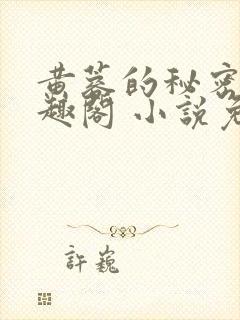 黄蓉的秘密
趣阁 小说免
許巍